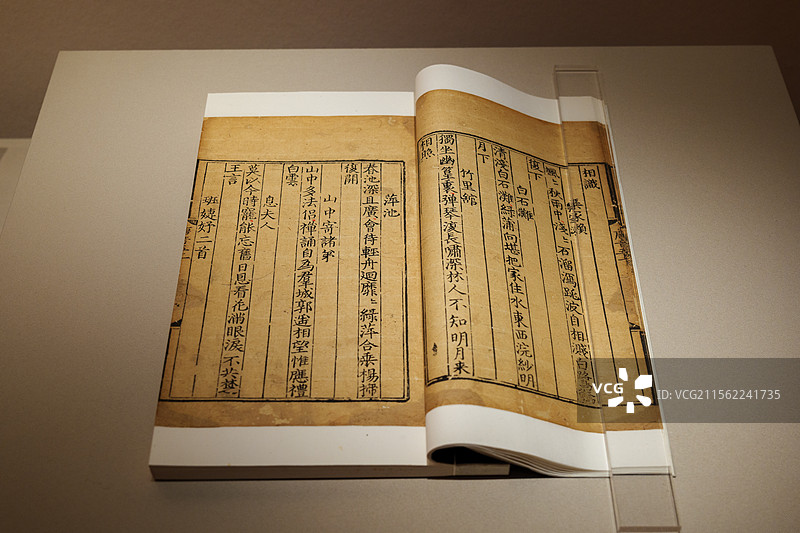 相識
欒家瀨
颯〻秋雨中淺〻石溜瀉跳波自相濺白鷺
復下
白石灘
清淺白石灘綠蒲向堪把家住水東西浣紗明
月下
竹里館
獨坐幽篁裏彈琴復長嘯深林人不知明月来
相照
萍池
春池深且廣會待輕舟迴靡〻綠萍合垂楊掃
復開
山中寄諸弟
山中多法侶禪誦自為羣城郭遥相望惟應禮
白雲
息夫人
莫以今時寵能忘舊日恩看花滿眼淚不共楚
王言
班婕妤二首
VCG
ID: VCG211562241735